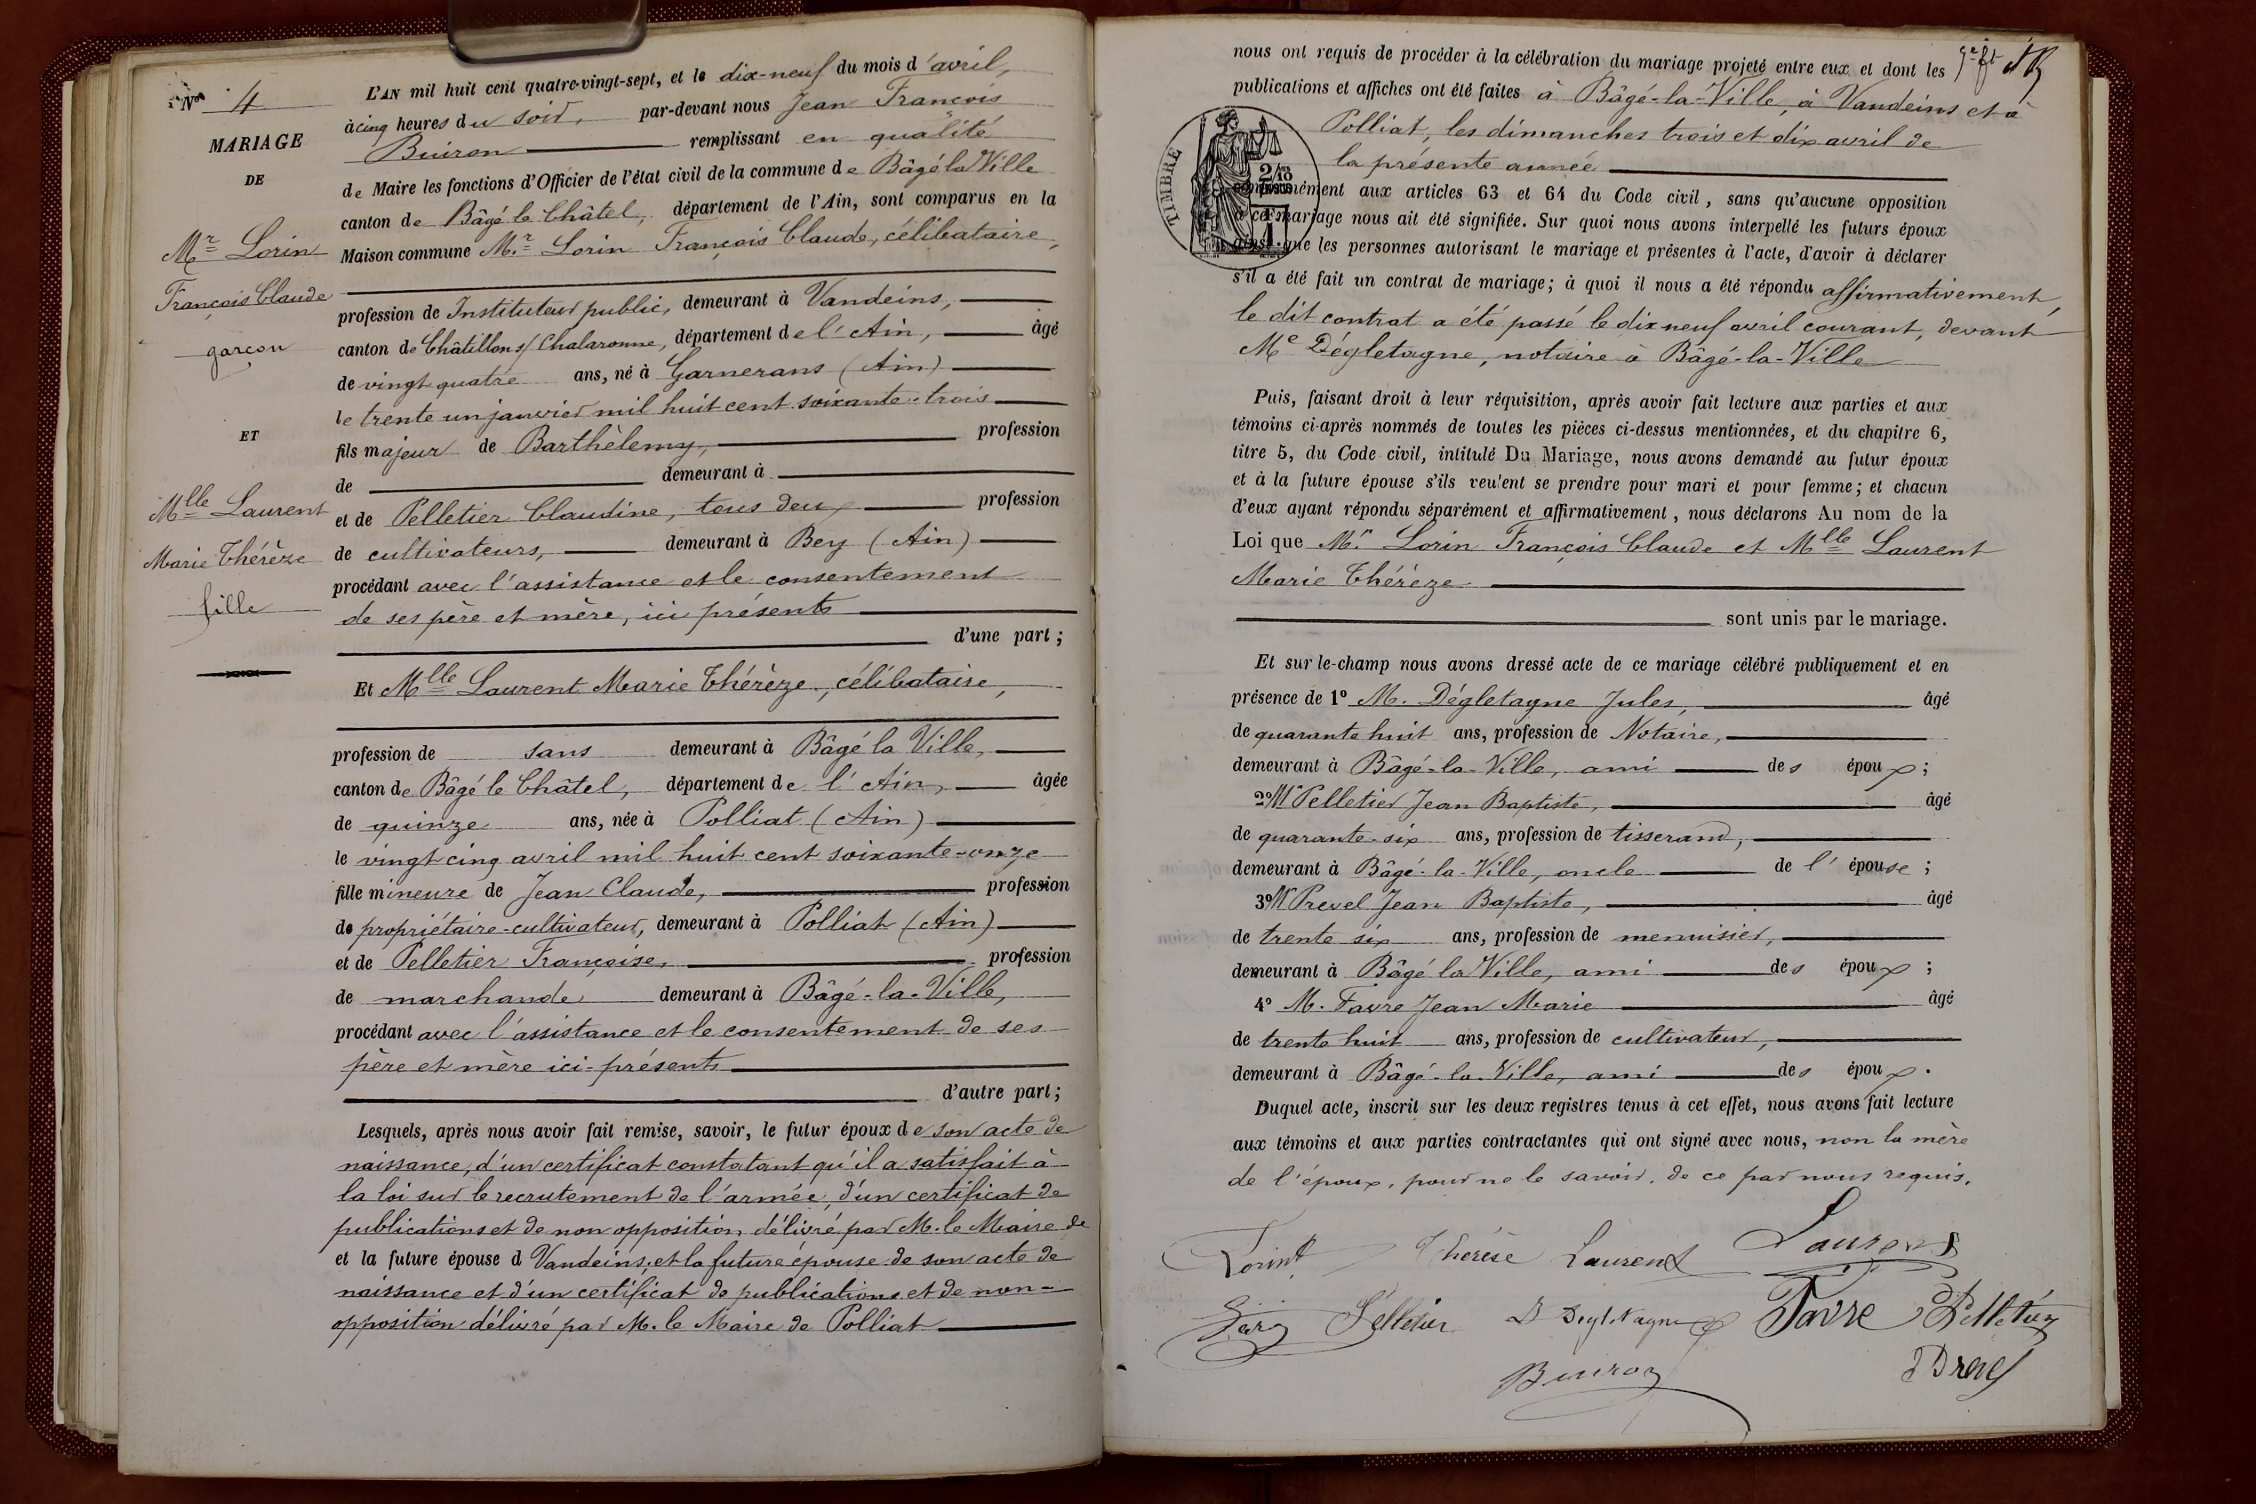 N° 4
MARIAGE
DE
Mr Lorin
François Claude
garçon
ET
Mlle Laurent
Marie Thérèze
fille
L'AN mil huit cent quatre-vingt-sept, et le dix-neuf du mois d'avril,
à cinq heures du soir, par-devant nous Jean François
Buiron remplissant en qualité
de Maire les fonctions d'Officier de l'état civil de la commune de Bâgé la Ville
canton de Bâgé le Châtel, département de l'Ain, sont comparus en la
Maison commune Mr. Lorin François Claude, célibataire,
profession de Instituteur public, demeurant à Vandeins,
canton de Châtillon s/ Chalaronne, département de l'Ain, âgé
de vingt quatre ans, né à Garnerans (Ain)
le trente un janvier mil huit cent soixante-trois
fils majeur de Barthèlemy, profession
de demeurant à
et de Pelletier Claudine, tous deux profession
de cultivateurs, demeurant à Bey (Ain)
procédant avec l'assistance et le consentement
de ses père et mère, ici présents
d'une part ;
Et Mlle Laurent Marie Thérèze, célibataire,
profession de sans demeurant à Bâgé la Ville,
canton de Bâgé le Châtel, département de l'Ain, âgée
de quinze ans, née à Polliat (Ain)
le vingt cinq avril mil huit cent soixante-onze
fille mineure de Jean Claude, profession
de propriétaire-cultivateur, demeurant à Polliat (Ain)
et de Pelletier Françoise, profession
de marchande demeurant à Bâgé-la-Ville,
procédant avec l'assistance et le consentement de ses
père et mère ici-présents
d'autre part ;
Lesquels, après nous avoir fait remise, savoir, le futur époux de son acte de
naissance, d'un certificat constatant qu'il a satisfait à
la loi sur le recrutement de l'armée, d'un certificat de
publications et de non opposition délivré par M. le Maire de
et la future épouse d Vandeins, et la future épouse de son acte de
naissance et d'un certificat de publications et de non-
opposition délivré par M. le Maire de Polliat
nous ont requis de procéder à la célébration du mariage projeté entre eux et dont les
publications et affiches ont été faites à Bâgé-la-Ville, à Vandeins et à
Polliat, les dimanches trois et dix avril de
la présente année
TIMBRE
conformément aux articles 63 et 64 du Code civil, sans qu'aucune opposition
à ce mariage nous ait été signifiée. Sur quoi nous avons interpellé les futurs époux
ainsi que les personnes autorisant le mariage et présentes à l'acte, d'avoir à déclarer
s'il a été fait un contrat de mariage ; à quoi il nous a été répondu affirmativement,
le dit contrat a été passé le dix neuf avril courant, devant
Me Dégletagne, notaire à Bâgé-la-Ville
Puis, faisant droit à leur réquisition, après avoir fait lecture aux parties et aux
témoins ci-après nommés de toutes les pièces ci-dessus mentionnées, et du chapitre 6,
titre 5, du Code civil, intitulé Du Mariage, nous avons demandé au futur époux
et à la future épouse s'ils veulent se prendre pour mari et pour femme ; et chacun
d'eux ayant répondu séparément et affirmativement, nous déclarons Au nom de la
Loi que Mr Lorin François Claude et Mlle Laurent
Marie Thérèze
sont unis par le mariage.
Et sur-le-champ nous avons dressé acte de ce mariage célébré publiquement et en
présence de 1° M. Dégletagne Jules, âgé
de quarante huit ans, profession de Notaire,
demeurant à Bâgé-la-Ville, ami des époux ;
2° Mr Pelletier Jean Baptiste, âgé
de quarante-six ans, profession de tisserand,
demeurant à Bâgé-la-Ville, oncle de l'épouse ;
3° Mr Prevel Jean Baptiste, âgé
de trente six ans, profession de menuisier,
demeurant à Bâgé la Ville, ami des époux ;
4° M. Favre Jean Marie âgé
de trente huit ans, profession de cultivateur,
demeurant à Bâgé-la-Ville, ami des époux.
Duquel acte, inscrit sur les deux registres tenus à cet effet, nous avons fait lecture
aux témoins et aux parties contractantes qui ont signé avec nous, non la mère
de l'époux, pour ne le savoir, de ce par nous requis.
Lorin Thérèse Laurent Laurent
Pelletier Favre Pelletier
Buiron